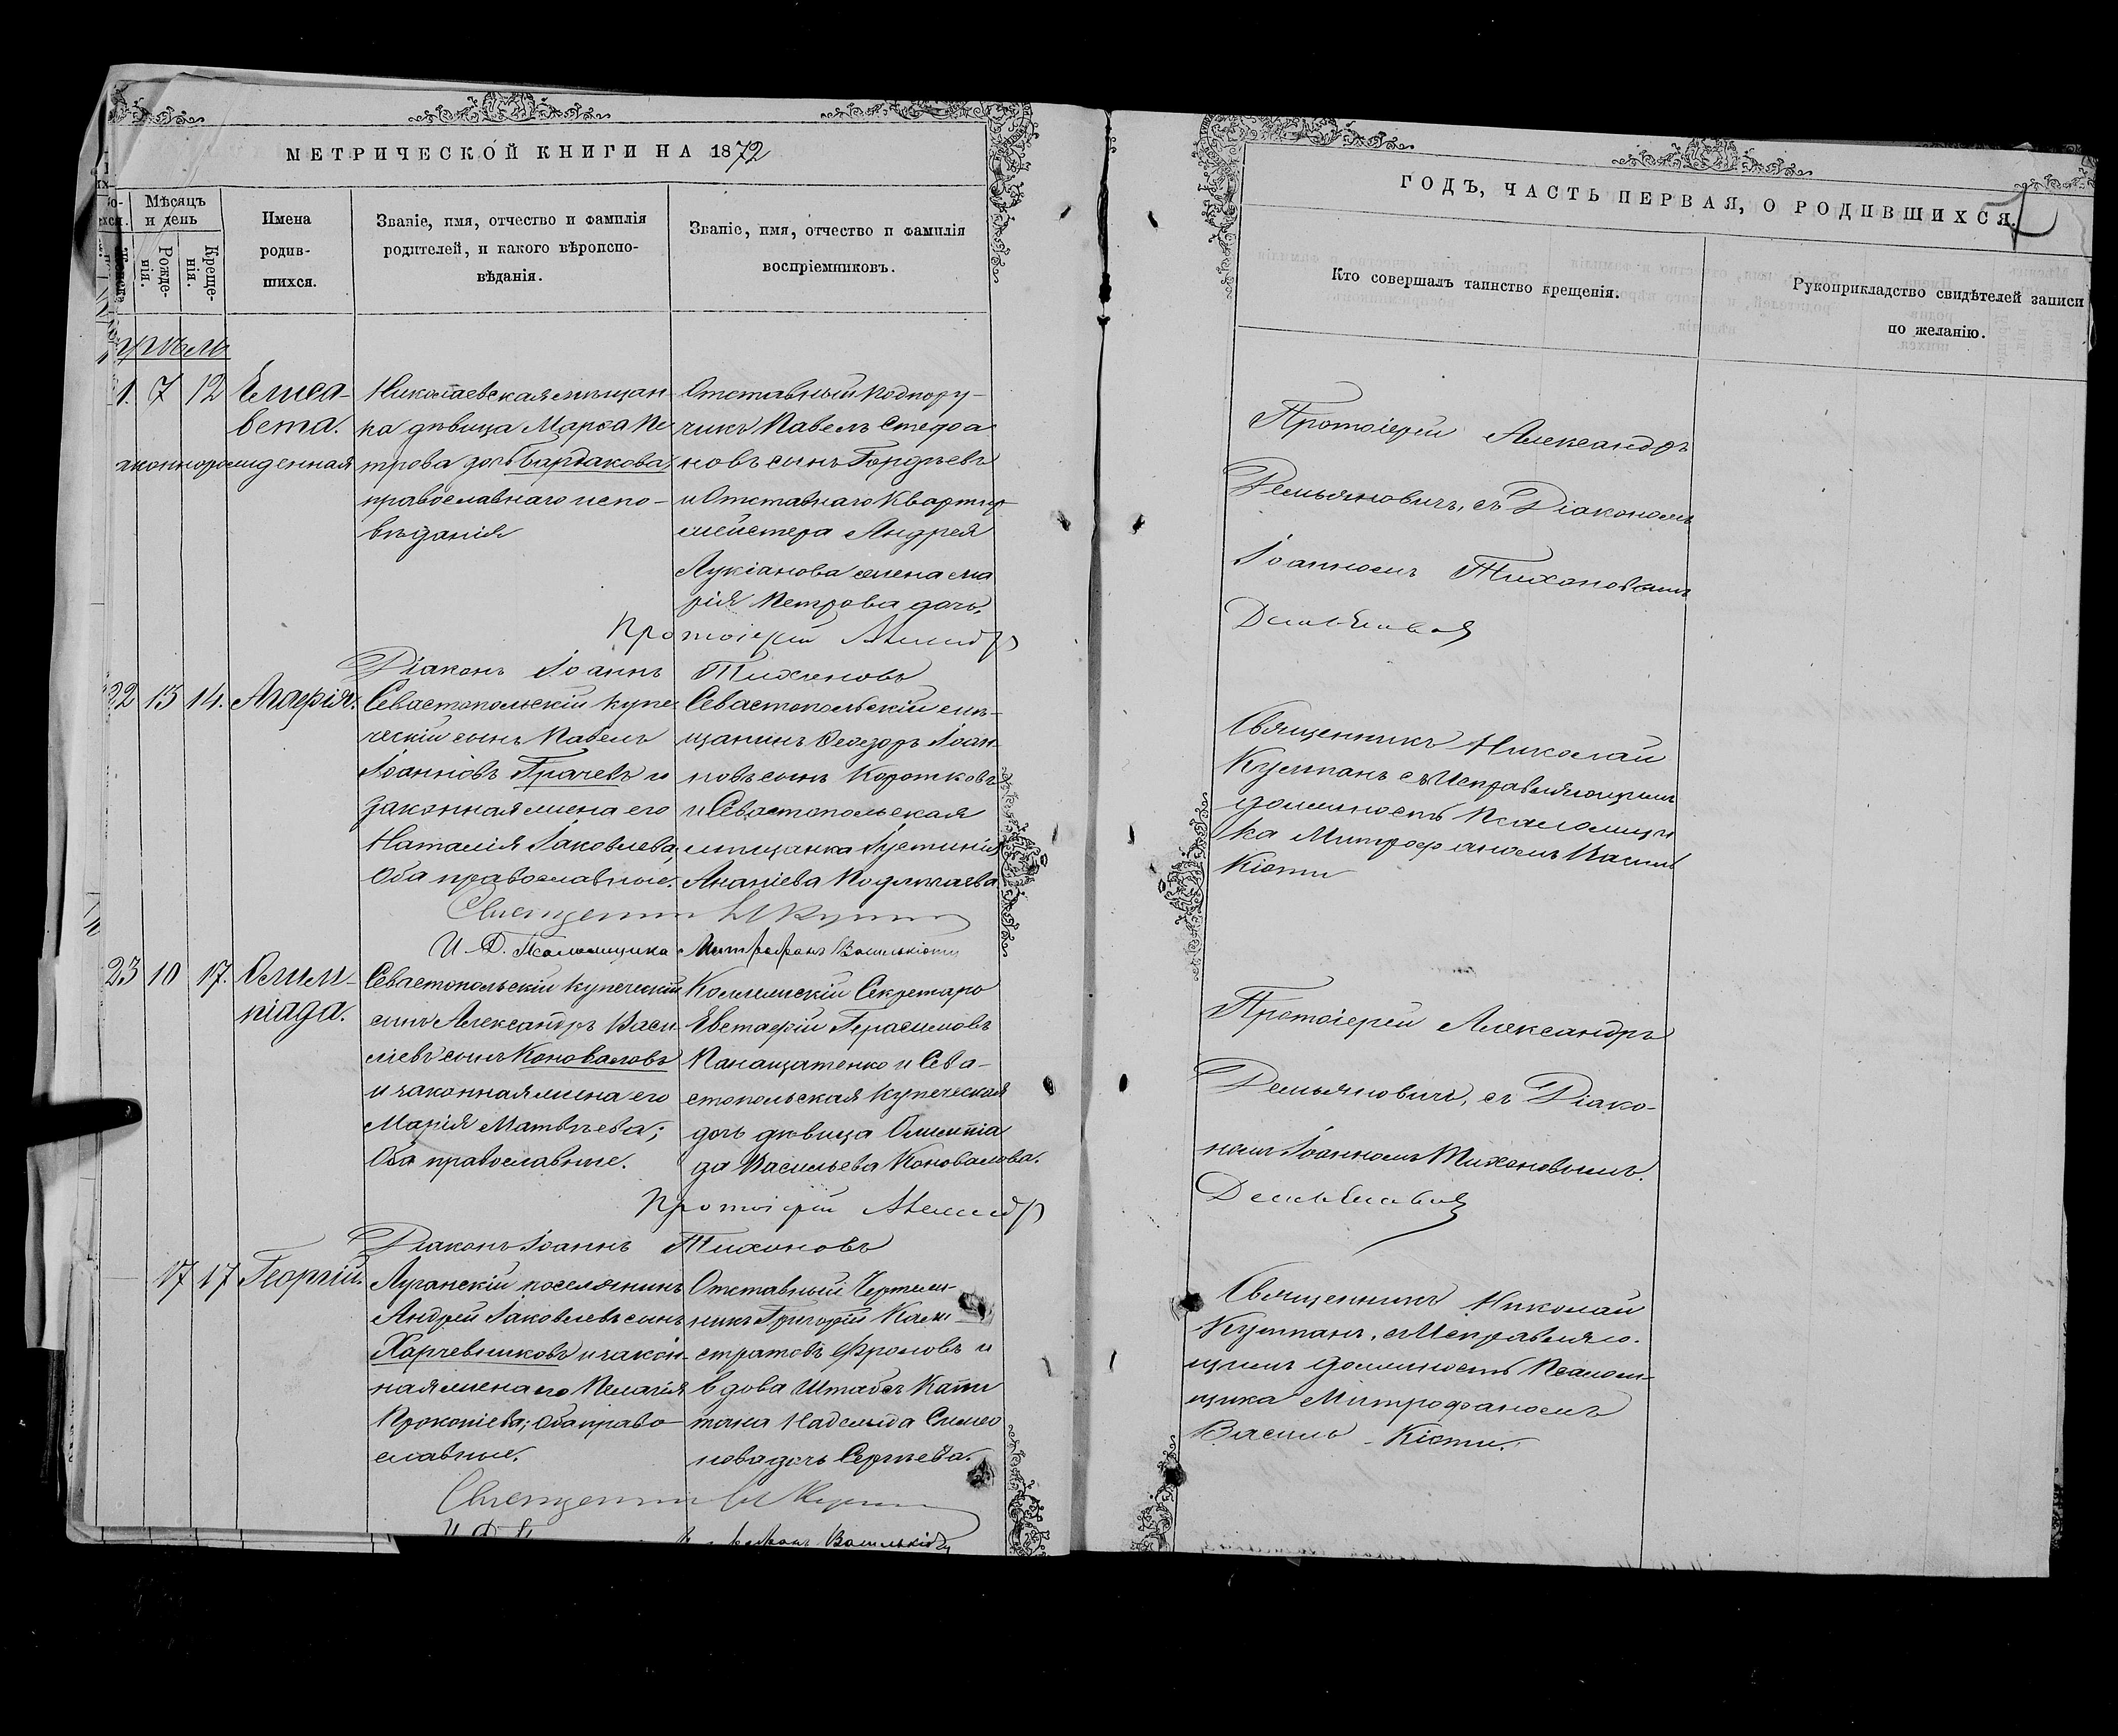 МЕТРИЧЕСКОЙ КНИГИ НА 1872
Мѣсяцъ
и день
Рожде-
нія.
Креще-
нія.
Имена
родив-
шихся.
Званіе, имя, отчество и фамилія
родителей, и какого вѣроиспо-
вѣданія.
Званіе, имя, отчество и фамилія
воспріемниковъ.
1. 7 12 Елиса-
вета.
Николаевская мѣщан-
ка дѣвица Марѳа Пе
трова дочь Бардакова,
православнаго испо-
вѣданія
Отставный Подпору-
чикъ Павелъ Стефа
новъ сынъ Гордѣевъ
и Отставнаго Квартир
мейстера Андрея
Лукіанова жена Ма
рія Петрова дочь.
Протоіерей
Діаконъ Іоаннъ Тихоновъ
22 13 14. Агафія.
Севастопольскій купе
ческій сынъ Павелъ
Іоанновъ Грачевъ и
законная жена его
Наталія Іаковлева,
Оба православные.
Севастопольскій мѣ-
щанинъ Ѳеодоръ Іоан-
новъ сынъ Коротковъ
и Севастопольская
мѣщанка Іустинія
Ананіева
И. Д. Псаломщика Митрофанъ Василькіоти
23 10 17. Олим-
піада.
Севастопольскій купеческій
сынъ Александръ Васи
ліевъ сынъ Коноваловъ
и законная жена его
Марія Матвѣева;
Оба православные.
Коллежскій Секретарь
Евстафій Герасимовъ
Панащатенко и Сева-
стопольская купеческая
дочь дѣвица Олимпіа
да Васильева Коновалова.
Протоіерей
Діаконъ Іоаннъ Тихоновъ
17 17 Георгій.
Луганскій поселянинъ
Андрей Іаковлевъ сынъ
Харчевниковъ и закон-
ная жена его Пелагія
Прокопіева; Оба право
славные.
Отставный Чертеж
никъ Григорій Кали
стратовъ Фроловъ и
вдова Штабсъ Капи
тана Надежда Симео
нова дочь Сергѣева.
ГОДЪ, ЧАСТЬ ПЕРВАЯ, О РОДИВШИХСЯ.
Кто совершалъ таинство крещенія.
Рукоприкладство свидѣтелей записи
по желанію.
Протоіерей Александръ
Демьяновичъ, съ Діакономъ
Іоанномъ Тихоновымъ
Священникъ Николай
Кушпанъ съ Исправляющимъ
должность Псаломщи
ка Митрофаномъ Василь
Кіоти
Протоіерей Александръ
Демьяновичъ, съ Діако-
номъ Іоанномъ Тихоновымъ.
Священникъ Николай
Кушпанъ, съ Исправляю-
щимъ должность Псалом-
щика Митрофаномъ
Василь-Кіоти.